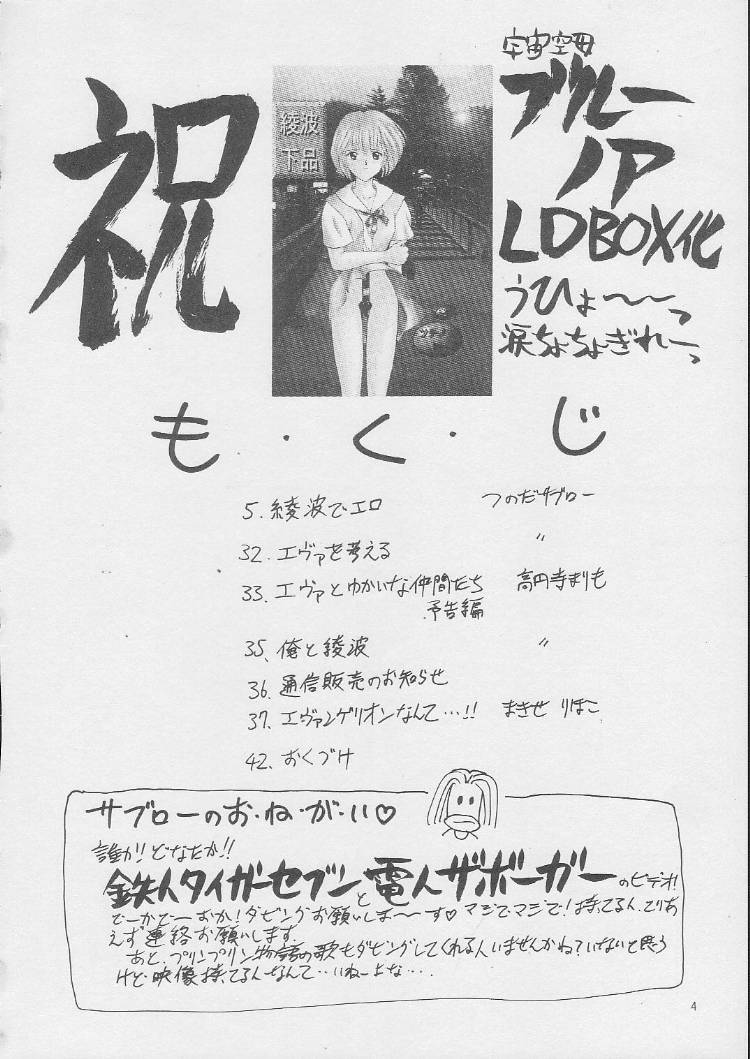 祝
宇宙空母
ブルー
ノア
LDBOX化
うひょ〜〜っ
涙ちょちょぎれーっ
綾波
下品
も・く・じ
5. 綾波でエロ つのだサブロー
32. エヴァを考える 〃
33. エヴァとゆかいな仲間たち 高円寺まりも
予告編
35. 俺と綾波 〃
36. 通信販売のお知らせ
37. エヴァンゲリオンなんて…!! まきせ りほこ
42. おくづけ
サブローのお・ね・が・い♡
誰か!どなたか!!
鉄人タイガーセブンと電人ザボーガーのビデオ!
どーかどーおか!ダビングお願いしま〜〜す♡マジでマジで!持ってるん、とりあ
えず連絡お願いします。
あと、プリンプリン物語の歌もダビングしてくれる人いませんかね?いないと思う
けど映像持ってる人なんて…いねーよな…。
4